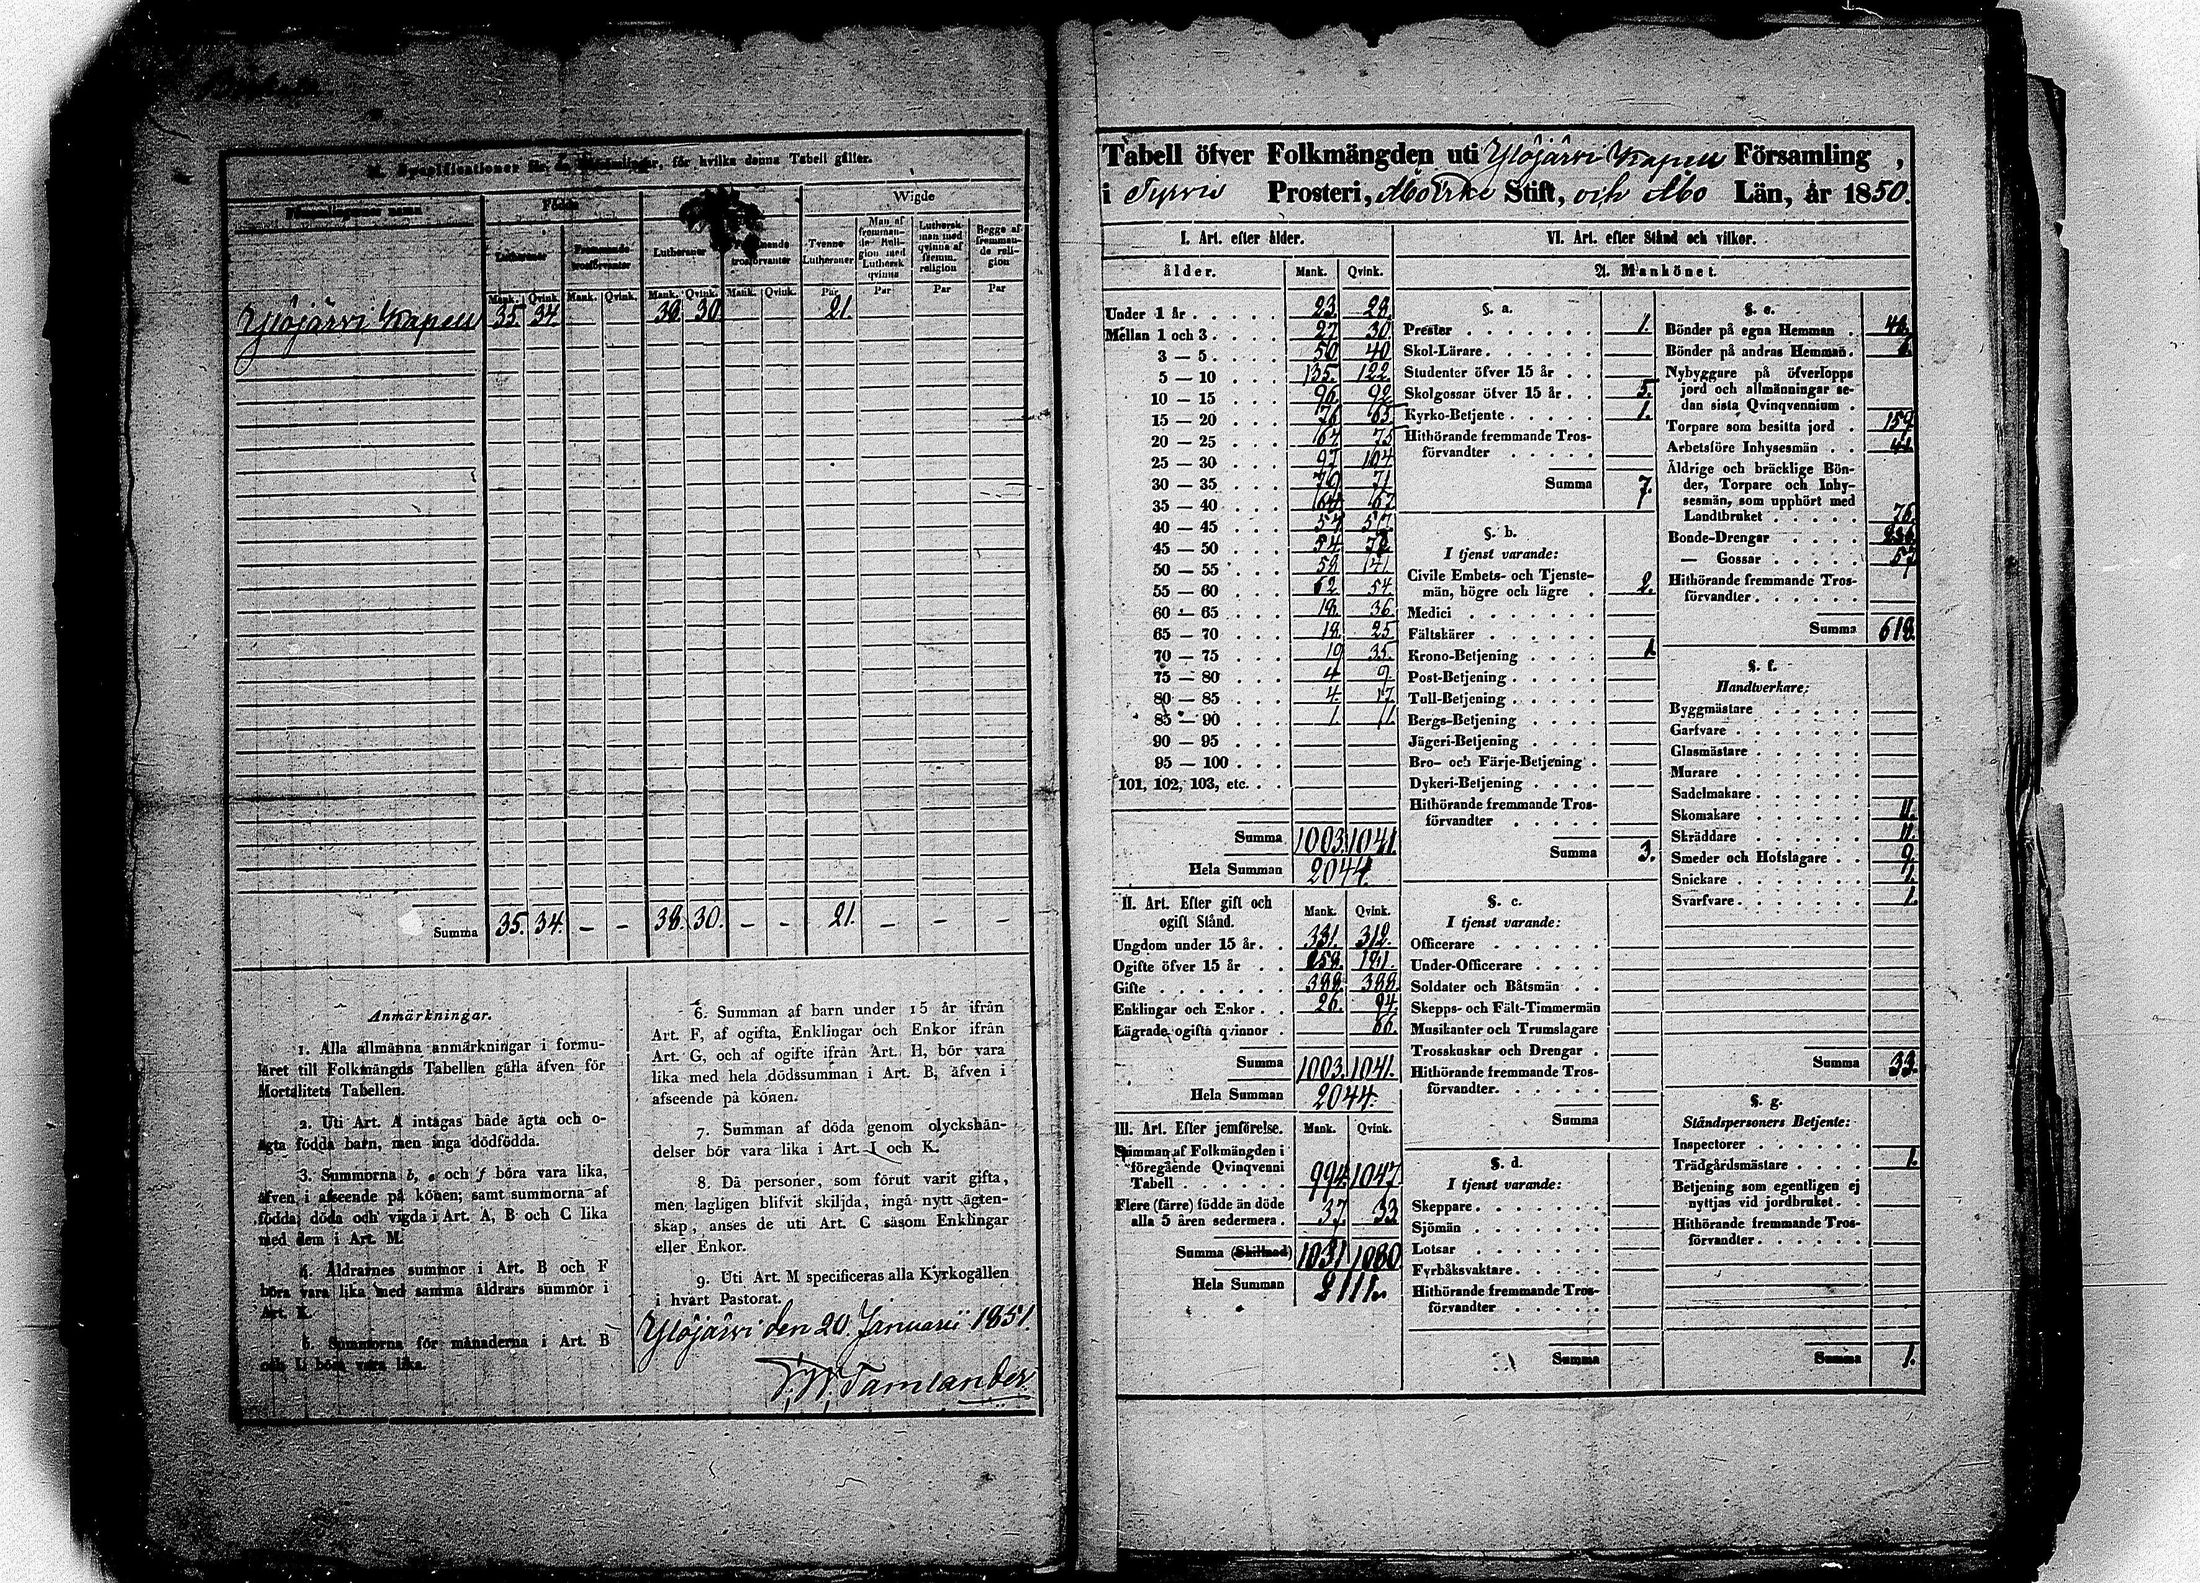 M. Specificationer för de Församlingar, för hvilka denna Tabell gäller.
Församlingarnes namn
Födde
Wigde
Lutheraner
Frammande trosförvanter
Lutheraner
trosförvanter
Tvenne Lutheraner
Man af fremmande Religion med Luthersk qvinna
Luthersk man med qvinna af fremm. religion
Begge af fremmande religion
Mank. Qvink. Mank. Qvink. Mank. Qvink. Mank. Qvink. Par Par Par Par
Ylöjärvi Kapell 35. 34. — — 38. 30. — — 21. — — —
Summa 35. 34. — — 38. 30. — — 21. — — —
Anmärkningar.
1. Alla allmänna anmärkningar i formu-
läret till Folkmängds Tabellen gälla äfven för
Mortalitets Tabellen.
2. Uti Art. A intagas både ägta och o-
ägta födda barn, men inga dödfödda.
3. Summorna b, e och f böra vara lika,
äfven i afseende på könen; samt summorna af
födda, döda och vigda i Art. A, B och C lika
med dem i Art. M.
4. Åldrarnes summor i Art. B och F
böra vara lika med samma åldrars summor i
Art. K.
5. Summorna för månaderna i Art. B
och L böra vara lika.
6. Summan af barn under 15 år ifrån
Art. F, af ogifta, Enklingar och Enkor ifrån
Art. G, och af ogifte ifrån Art. H, bör vara
lika med hela dödssumman i Art. B, äfven i
afseende på könen.
7. Summan af döda genom olyckshän-
delser bör vara lika i Art. I och K.
8. Då personer, som förut varit gifta,
men lagligen blifvit skiljda, ingå nytt ägten-
skap, anses de uti Art. C såsom Enklingar
eller Enkor.
9. Uti Art. M specificeras alla Kyrkogällen
i hvart Pastorat.
Ylöjärvi den 20. Januarii 1851.
Tamlander
Tabell öfver Folkmängden uti Ylöjärvi Kapell Församling,
i Tyrvis Prosteri, Åbo Erke Stift, och Åbo Län, år 1850.
I. Art. efter ålder.
ålder. Mank. Qvink.
Under 1 år 23. 28.
Mellan 1 och 3 27. 30.
3 — 5 50. 40.
5 — 10 135. 122.
10 — 15 96. 92.
15 — 20 76. 65.
20 — 25 75
25 — 30 97. 104.
30 — 35 71.
35 — 40 67.
40 — 45 57. 57.
45 — 50 54.
50 — 55
55 — 60 62. 54.
60 — 65 18. 36.
65 — 70 18. 25.
70 — 75 19. 35.
75 — 80 4. 9.
80 — 85 4. 17.
85 — 90 1. 11.
90 — 95
95 — 100
101, 102, 103, etc.
Summa 1003. 1041.
Hela Summan 2044.
II. Art. Efter gift och
ogift Stånd. Mank. Qvink.
Ungdom under 15 år 331. 312.
Ogifte öfver 15 år 258. 181.
Gifte 388. 388.
Enklingar och Enkor 26. 94.
Lägrade ogifta qvinnor 66.
Summa 1003. 1041.
Hela Summan 2044.
III. Art. Efter jemförelse. Mank. Qvink.
Summan af Folkmängden i
föregående Qvinqvenni
Tabell 994. 1047.
Flere (färre) födde än döde
alla 5 åren sedermera 37. 33
Summa (Skillnad) 1031. 1080.
Hela Summan 2111.
VI. Art. efter Stånd och vilkor.
A. Mankönet.
§. a.
Prester 1.
Skol-Lärare
Studenter öfver 15 år
Skolgossar öfver 15 år 5.
Kyrko-Betjente 1.
Hithörande fremmande Tros-
förvandter
Summa 7.
§. b.
I tjenst varande:
Civile Embets- och Tjenste-
män, högre och lägre 2.
Medici
Fältskärer
Krono-Betjening 1.
Post-Betjening
Tull-Betjening
Bergs-Betjening
Jägeri-Betjening
Bro- och Färje-Betjening
Dykeri-Betjening
Hithörande fremmande Tros-
förvandter
Summa 3.
§. c.
I tjenst varande:
Officerare
Under-Officerare
Soldater och Båtsmän
Skepps- och Fält-Timmermän
Musikanter och Trumslagare
Trosskuskar och Drengar
Hithörande fremmande Tros-
förvandter.
Summa
§. d.
I tjenst varande:
Skeppare
Sjömän
Lotsar
Fyrbåksvaktare
Hithörande fremmande Tros-
förvandter
Summa
§. e.
Bönder på egna Hemman 48.
Bönder på andras Hemman.
Nybyggare på öfverlopps
jord och allmänningar se-
dan sista Qvinqvennium
Torpare som besitta jord 159.
Arbetsföre Inhysesmän 41.
Äldrige och bräcklige Bön-
der, Torpare och Inhy-
sesmän, som upphört med
Landtbruket 76.
Bonde-Drengar 236.
— Gossar 57.
Hithörande fremmande Tros-
förvandter
Summa 618.
§. f.
Handtverkare:
Byggmästare
Garfvare
Glasmästare
Murare
Sadelmakare
Skomakare 11.
Skräddare 11.
Smeder och Hofslagare 9.
Snickare 1.
Svarfvare 1.
Summa 33.
§. g.
Ståndspersoners Betjente:
Inspectorer
Trädgårdsmästare 1.
Betjening som egentligen ej
nyttjas vid jordbruket
Hithörande fremmande Tros-
förvandter
Summa 1.